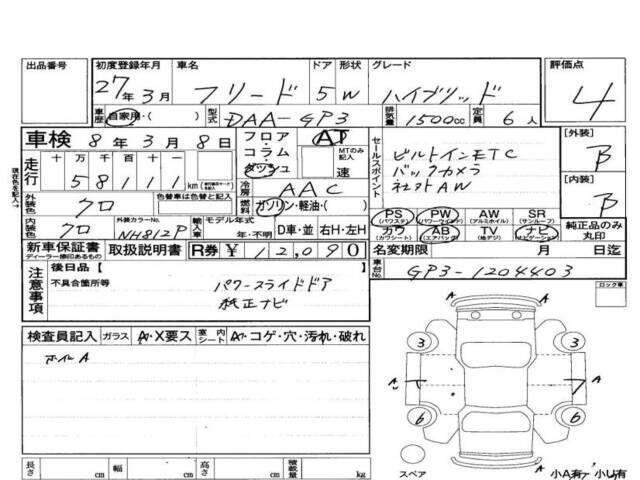 出品番号 初度登録年月 車名 ドア 形状 グレード 評価点
27年3月 フリード 5 W ハイブリッド 4
車歴 自家用・( ) 型式 DAA-GP3 排気量 1500cc 定員 6人
車検 8年3月8日 フロア・コラム・ダッシュ AT MTのみ記入 速
セールスポイント ビルトインETC
バックカメラ
社外AW
[外装] B
[内装] B
現在色を記入→
走行 十 万 千 百 十 一
58111 km
冷房 AAC
外装色 クロ 色替車は色替前と記入
燃料 ガソリン・軽油・( )
内装色 クロ 外装カラーNo. NH812P 輸入車 モデル年式 年・不明 D車・並 右H・左H
PS (パワステ) PW (パワーウインド) AW (アルミホイル) SR (サンルーフ)
カワ (カワシート) AB (エアバッグ) TV (地デジ) ナビ (ナビゲーション)
純正品のみ丸印
新車保証書 ディーラー捺印あるもの 取扱説明書 R券 ¥12,090
名変期限 月 日迄
注意事項 後日品[ ]
不具合箇所等 パワースライドドア
純正ナビ
車台No. GP3-1204403
ロック車
検査員記入 ガラス A・X要ス 室内シート A・コゲ・穴・汚れ・破れ
ホイルA
A
3 3
A A
6 6
A
スペア 小A有ァ 小U有
長さ cm 幅 cm 高さ cm 積載量 kg